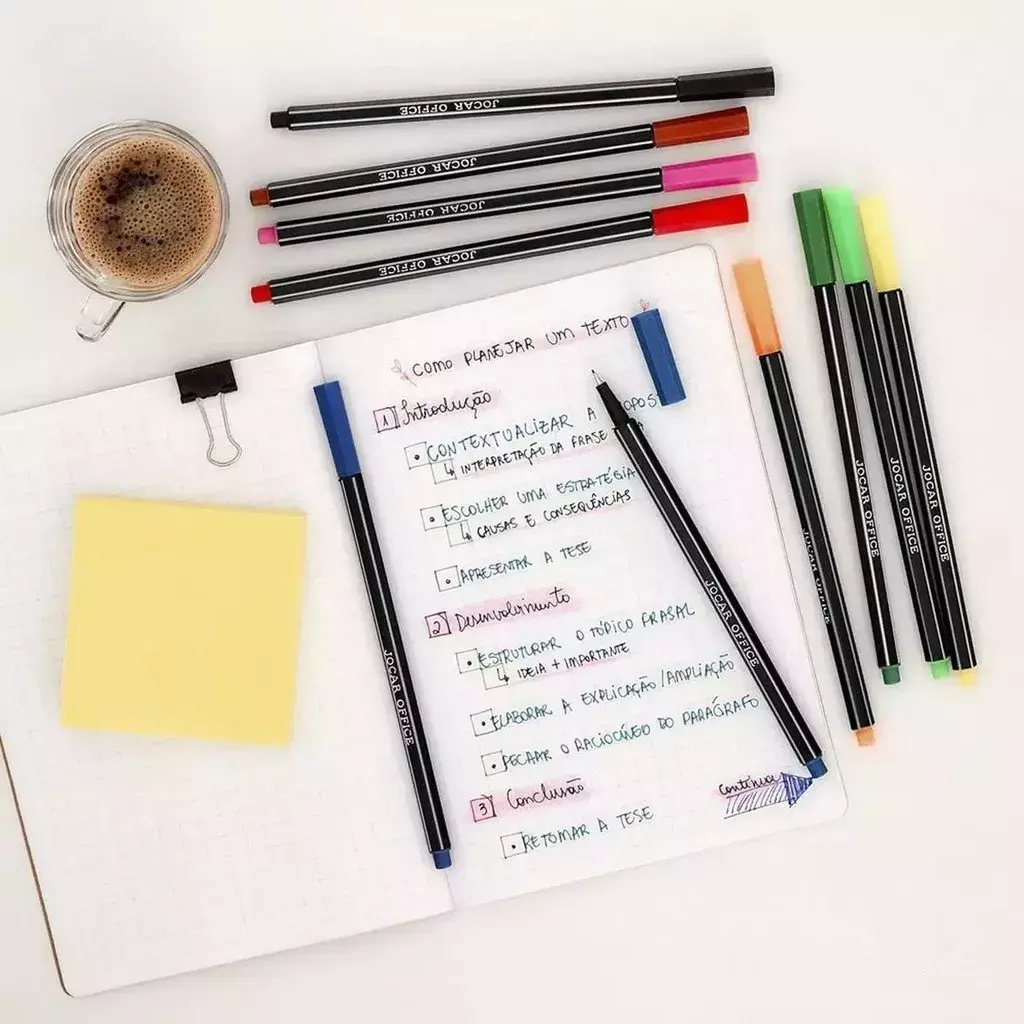 JOCAR OFFICE
JOCAR OFFICE
JOCAR OFFICE
JOCAR OFFICE
COMO PLANEJAR UM TEXTO
1 Introdução
• CONTEXTUALIZAR A
↳ INTERPRETAÇÃO DA FRASE
• ESCOLHER UMA ESTRATÉGIA
↳ CAUSAS E CONSEQUÊNCIAS
• APRESENTAR A TESE
2 Desenvolvimento
• ESTRUTURAR O TÓPICO FRASAL
↳ IDEIA + IMPORTANTE
• ELABORAR A EXPLICAÇÃO/AMPLIAÇÃO
• FECHAR O RACIOCÍNEO DO PARÁGRAFO
3 Conclusão
• RETOMAR A TESE
Continua
JOCAR OFFICE
JOCAR OFFICE
JOCAR OFFICE
JOCAR OFFICE
JOCAR OFFICE
JOCAR OFFICE